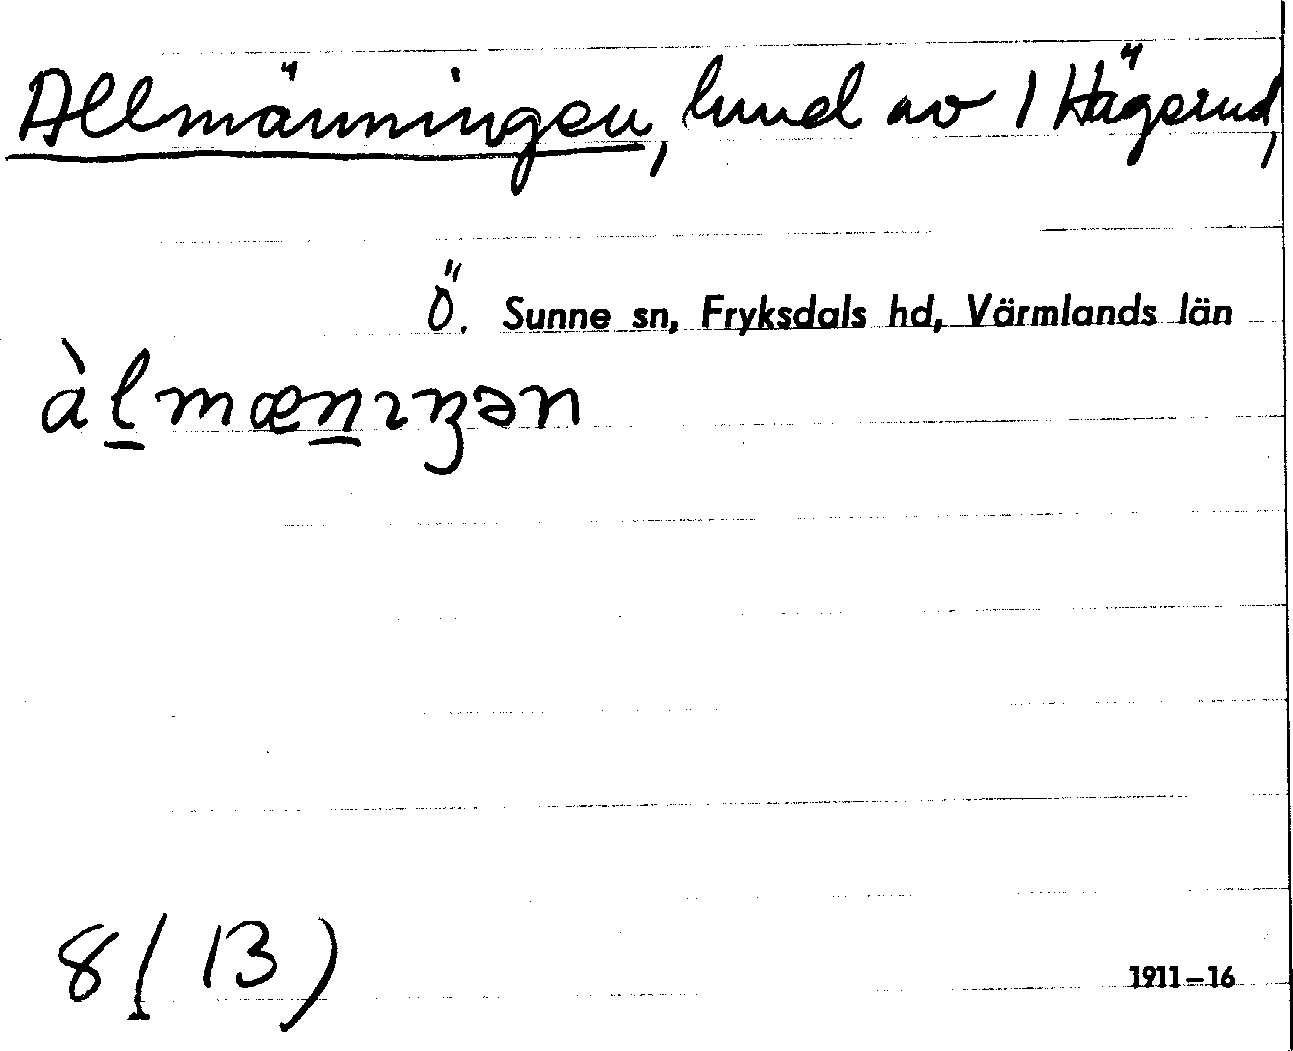 Allmänningen, lund av 1 Hägerud,
Ö. Sunne sn, Fryksdals hd, Värmlands län
àl̲mæn̲ıŋən
8 (13)
1911–16